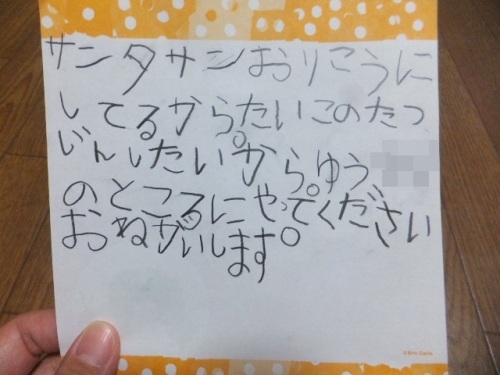 サンタサンおりこうに
してるから。たいこのたつ
じんしたいから。ゆう、
のところにやってください
おねがいします。
©Eric Carle